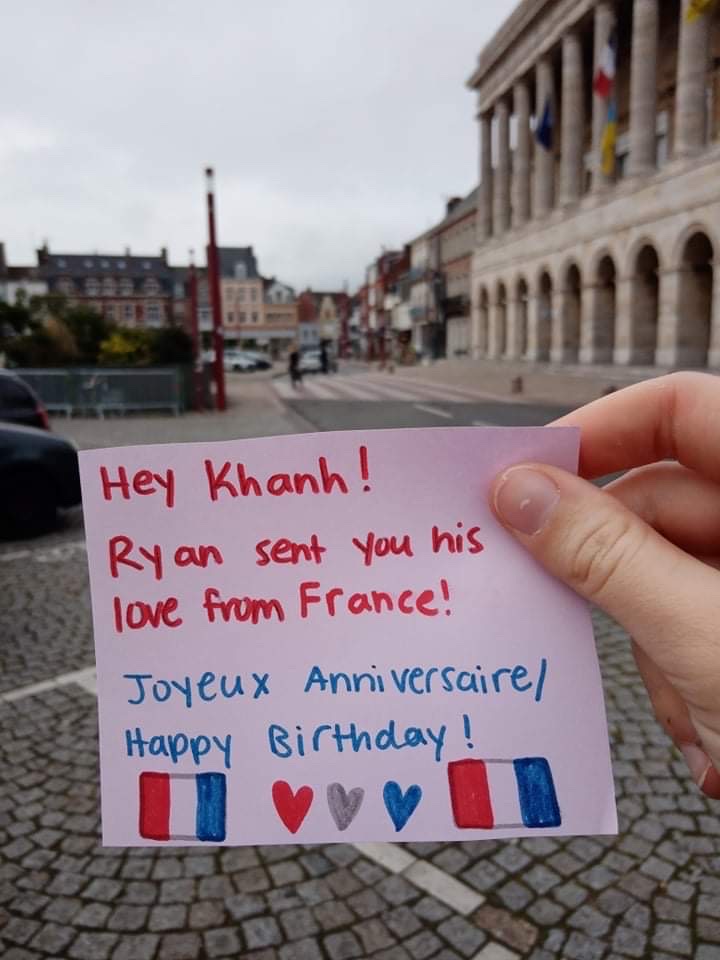 Hey Khanh!
Ryan sent you his
love from France!
Joyeux Anniversaire/
Happy Birthday!